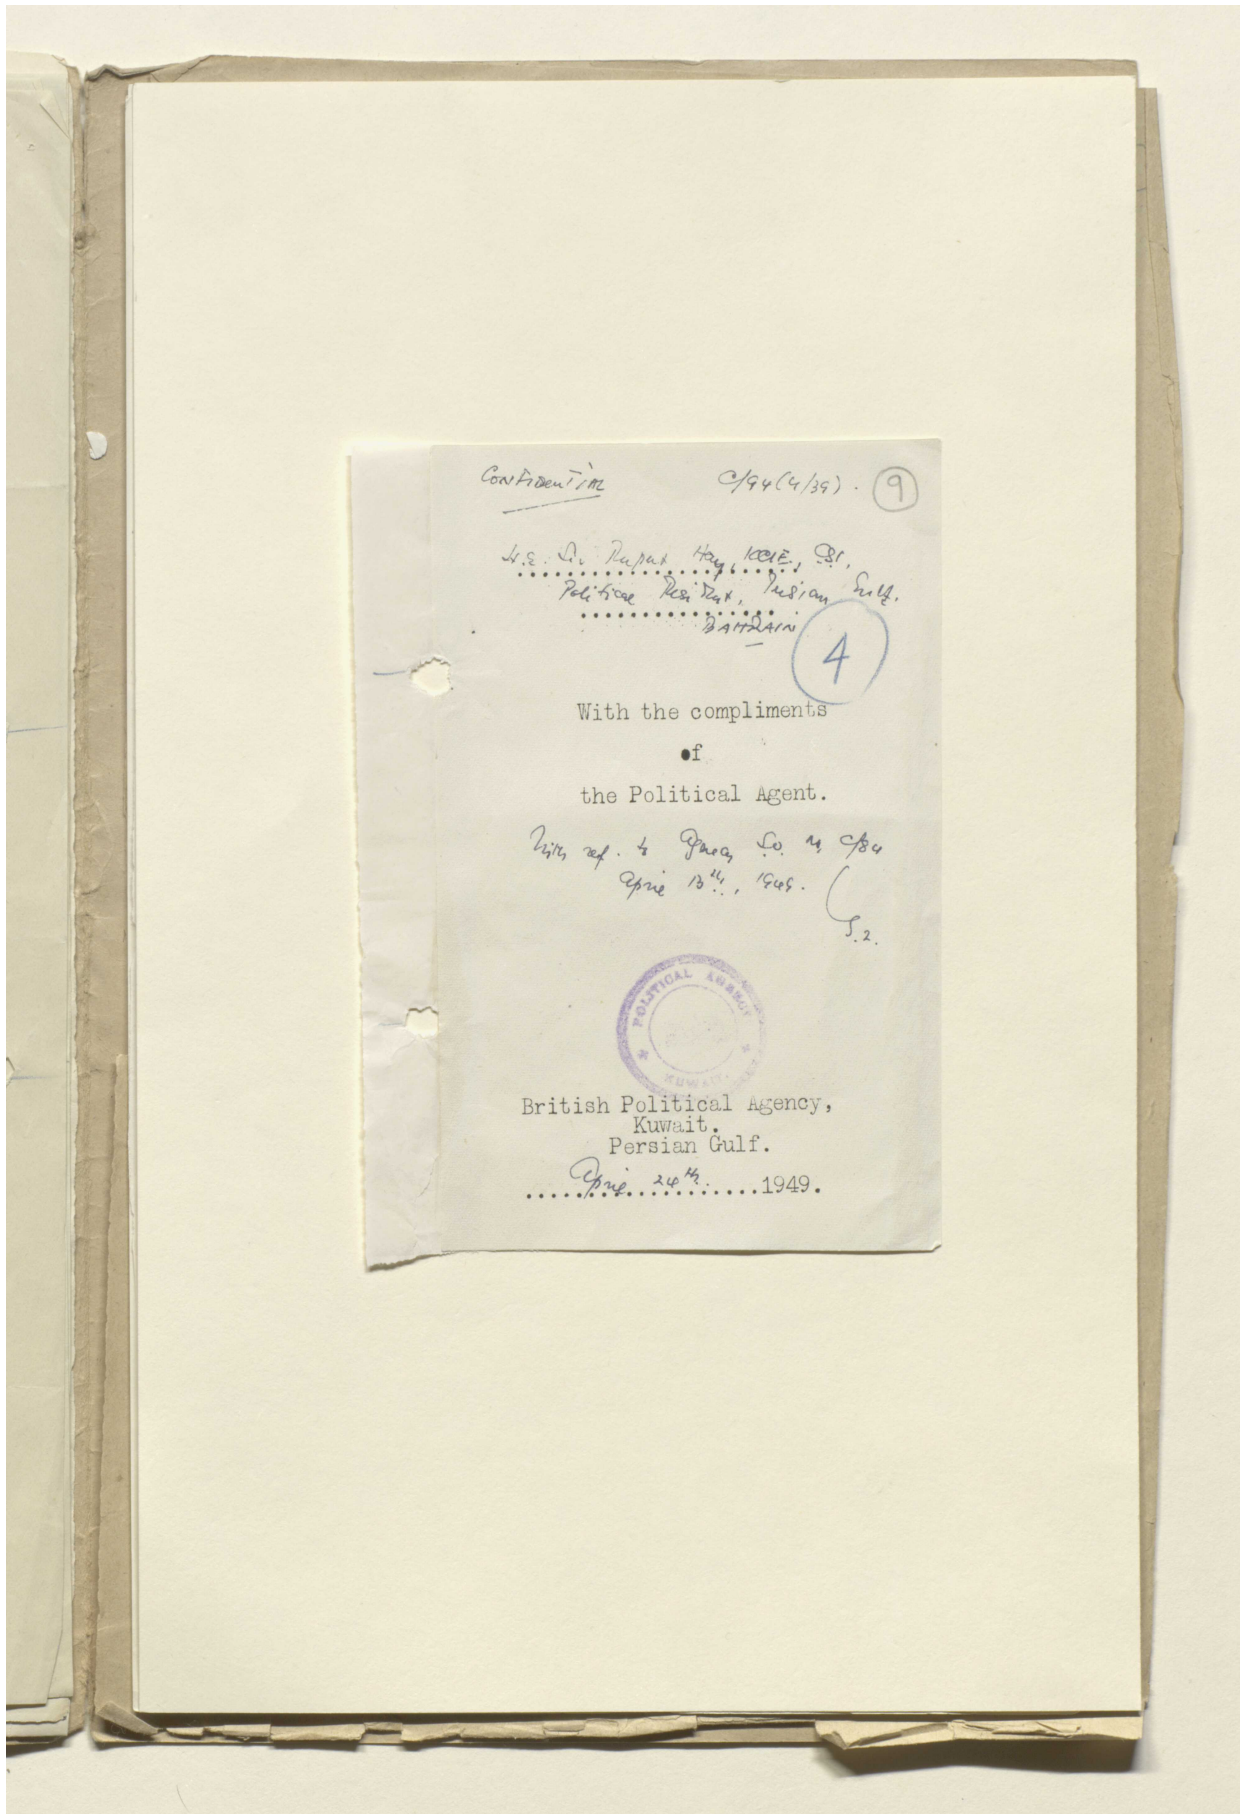 Confidential
C/94 (4/39).
9
H.E. Sir Rupert Hay, KCIE, CSI,
Political Resident, Persian Gulf.
BAHRAIN
4
With the compliments
of
the Political Agent.
With ref. to Agency D.O. No C/84
April 13th, 1949.
POLITICAL AGENCY
KUWAIT.
British Political Agency,
Kuwait.
Persian Gulf.
April 24th 1949.